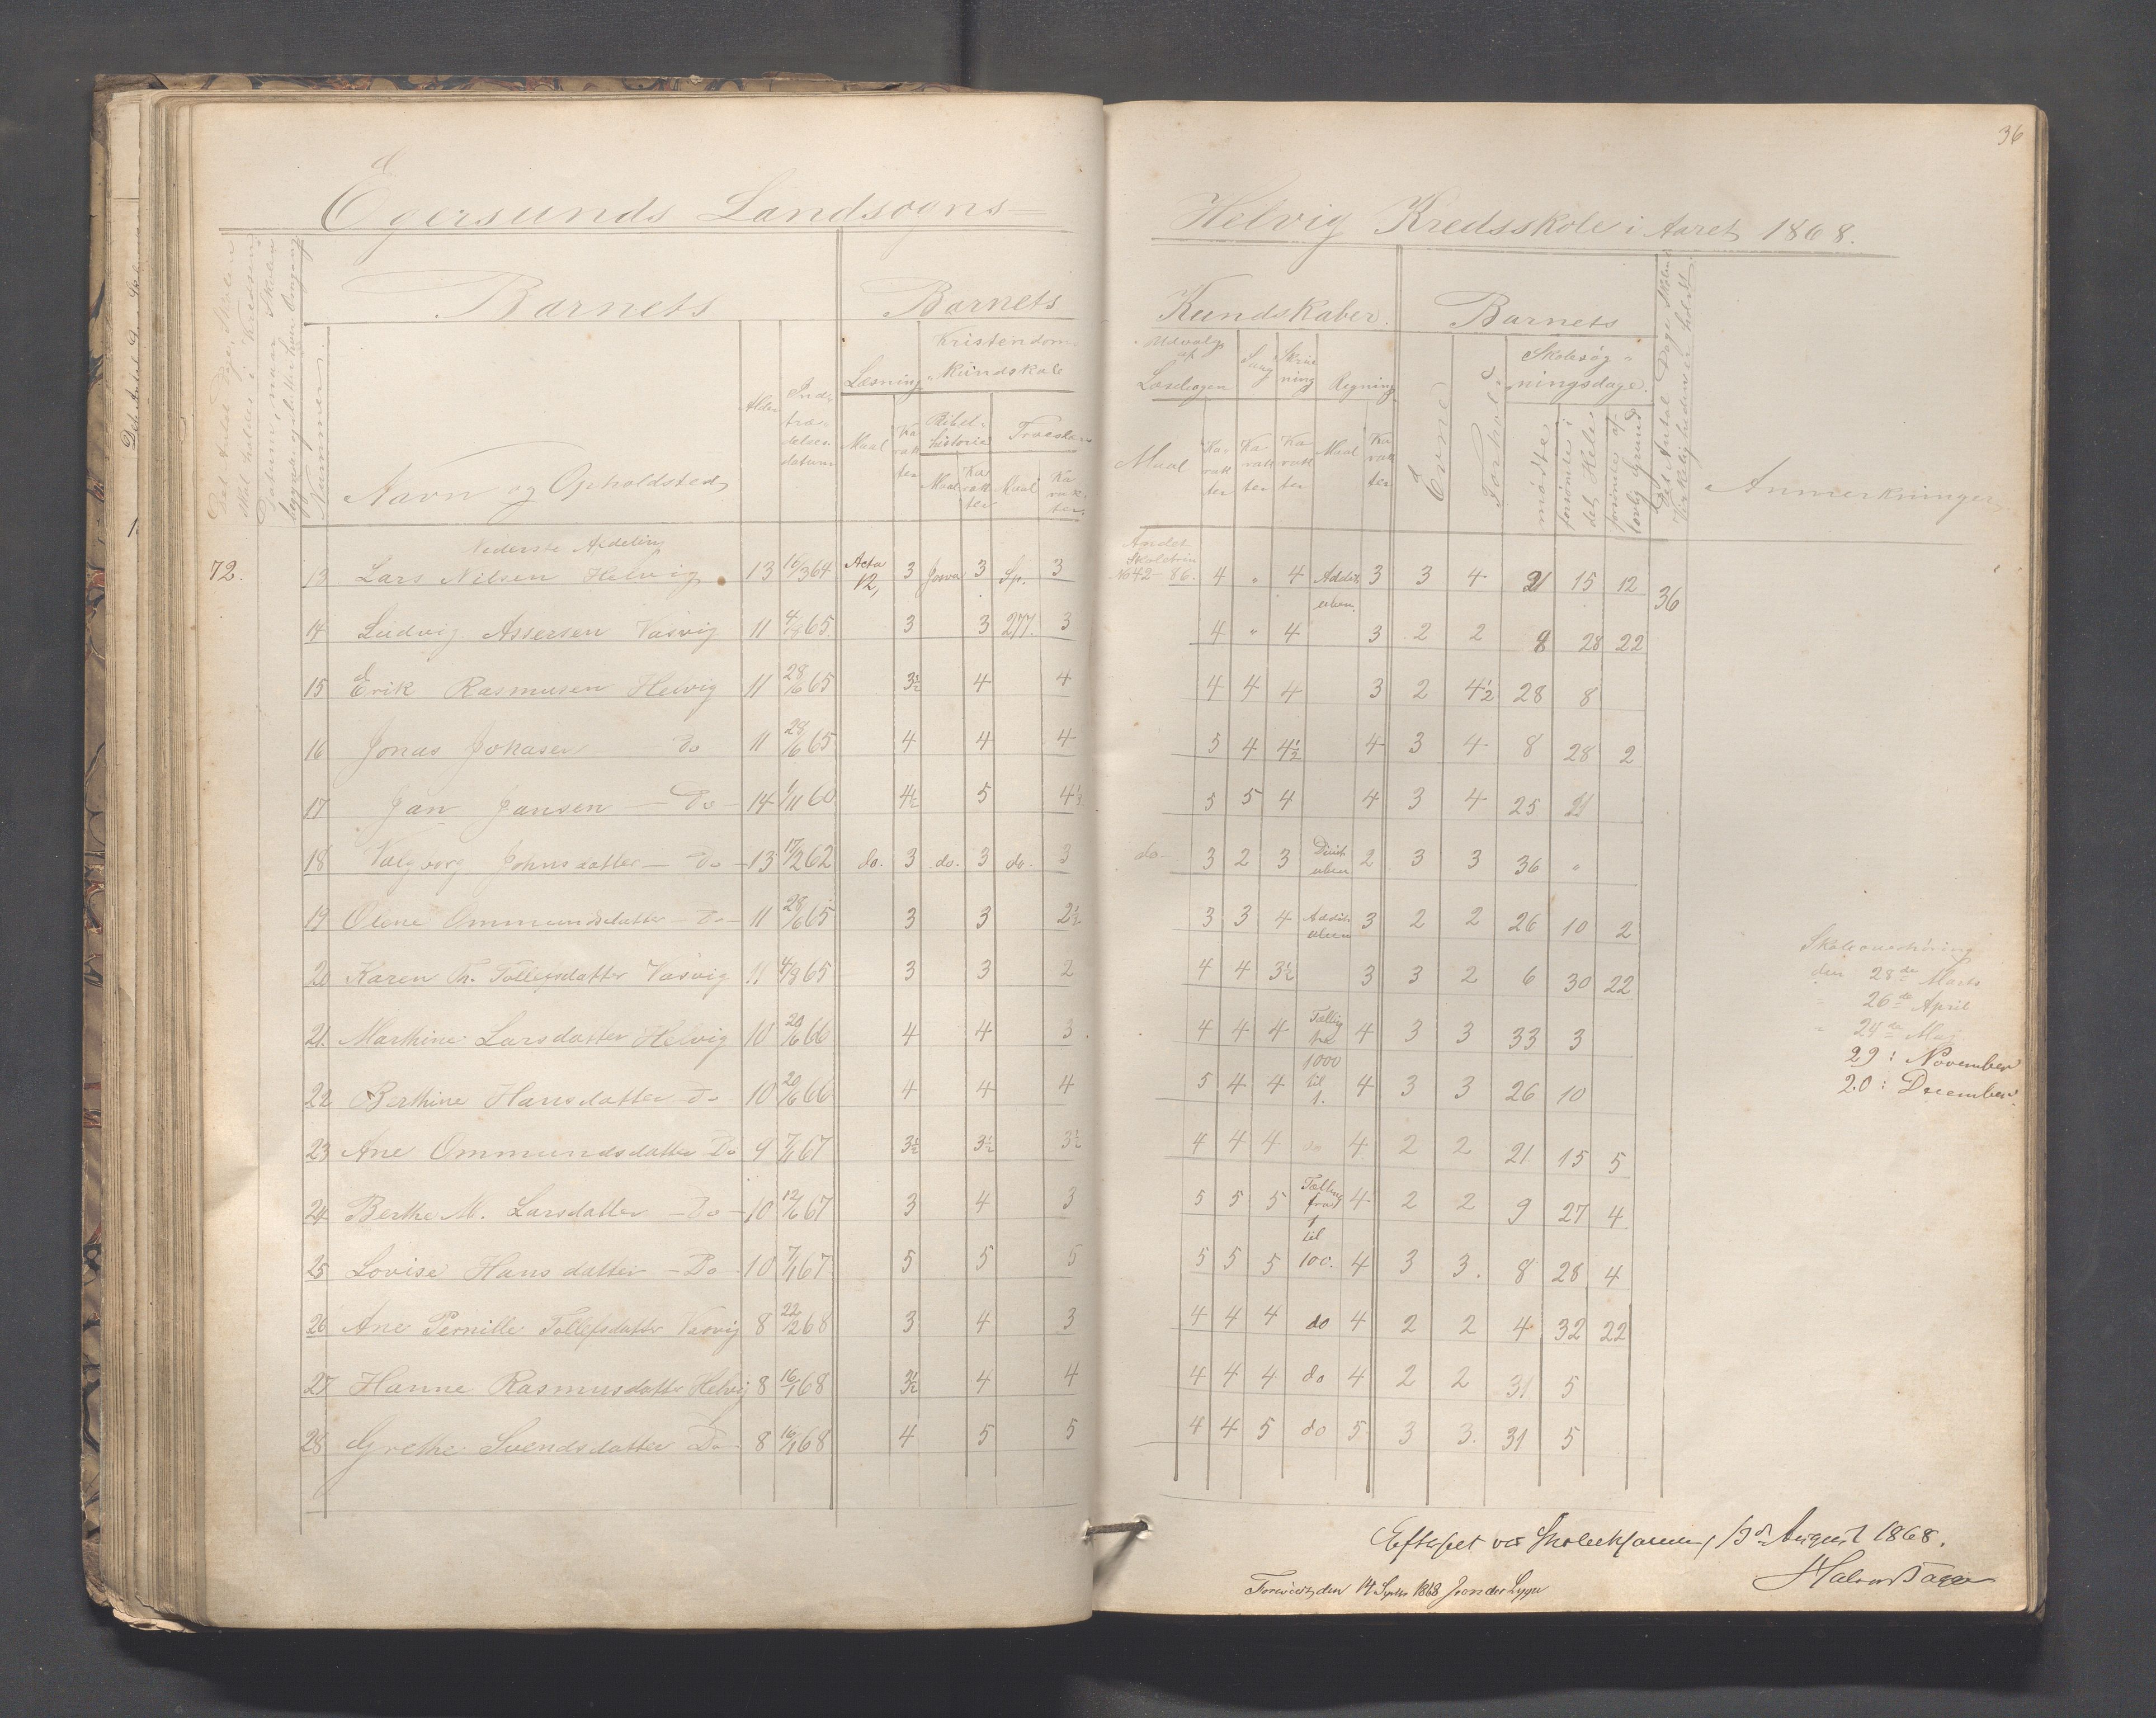 36
Egersunds Landsogns-
Helvig Kredsskole i Aaret 1868.
Det Antal Dage Skolen skal holdes i Kredsen
Datum, naar Skolen begynder og slutter hver Omgang
Nummer.
Barnets
Navn og Opholdsted
Alder
Indtrædelsesdatum
Barnets
Læsning
Maal
Karakter
Kristendomskundskab
Bibelhistorie
Maal
Karakter
Troeslære
Maal
Karakter
Kundskaber.
Udvalg af Læsebogen
Maal
Karakter
Sang
Karakter
Skrivning
Karakter
Regning
Maal
Karakter
Barnets
Evne
Forhold
Skolesøgningsdage.
mødte
forsømte i det Hele
forsømte af lovlig Grund
Det Antal Dage Skolen i Virkeligheden er holdt.
Anmerkninger
Nederste Afdeling
72. 13 Lars Nilsen Helvig 13 16/3 64 Acta 12, 3 3 Sp. 3 Andet Skoletrin No 42-86. 4 " 4 Addit. uben. 3 3 4 21 15 12 36
14 Ludvig Assersen Vasvig 11 4/9 65 3 3 277. 3 4 " 4 3 2 2 8 28 22
15 Erik Rasmusen Helvig 11 28/6 65 3½ 4 4 4 4 4 3 2 4½ 28 8
16 Jonas Johasen do 11 28/6 65 4 4 4 5 4 4½ 4 3 4 8 28 2
17 Jan Jansen - Do - 14 1/11 60 4½ 5 4½ 5 5 4 4 3 4 25 21
18 Valgvorg Johnsdatter - do - 13 17/2 62 do. 3 do. 3 do. 3 do- 3 2 3 uben 2 3 3 36 "
19 Olene Ommundsdatter - Do - 11 28/6 65 3 3 2½ 3 3 4 Addit. uben 3 2 2 26 10 2
20 Karen Th. Tollefsdatter Vasvig 11 4/9 65 3 3 2 4 4 3½ 3 3 2 6 30 22
21. Marthine Larsdatter Helvig 10 20/6 66 4 4 3 4 4 4 Tælling fra 4 3 3 33 3
22 Berthine Hansdatter Do 10 20/6 66 4 4 4 5 4 4 1000 til 1. 4 3 3 26 10
23 Ane Ommundsdatter Do 9 7/1 67 3½ 3½ 3½ 4 4 4 do 4 2 2 21 15 5
24 Berthe M. Larsdatter - Do - 10 12/6 67 3 4 3 5 5 5 Tælling fra 1 4 2 2 9 27 4
25 Lovise Hansdatter - Do 10 7/1 67 5 5 5 5 5 5 til 100. 4 3 3. 8 28 4
26 Ane Pernille Tollefsdatter Vasvig 8 22/2 68 3 4 3 4 4 4 do 4 2 2 4 32 22
27 Hanne Rasmusdatter Helvig 8 16/1 68 3½ 4 4 4 4 4 do 4 2 2 31 5
28 Grethe Svendsdatter Do 8 16/1 68 4 5 5 4 4 5 do 5 3 3. 31 5
Skoleoverhøring
den 28de Marts
" 26de April
" 24de Maj
29: November
20: December.
Efterseet ved Skoleeksamen, 13d August 1868.
den 14 Septbr 1868